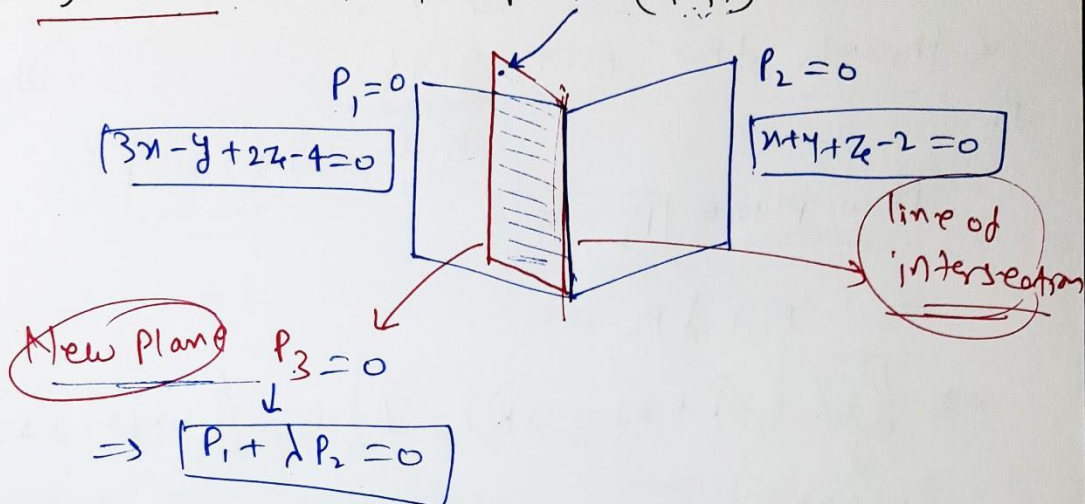 P₁=0
3x-y+2z-4=0
P₂=0
x+y+z-2=0
line of
intersection
New Plane P₃=0
⇒ P₁+λP₂=0